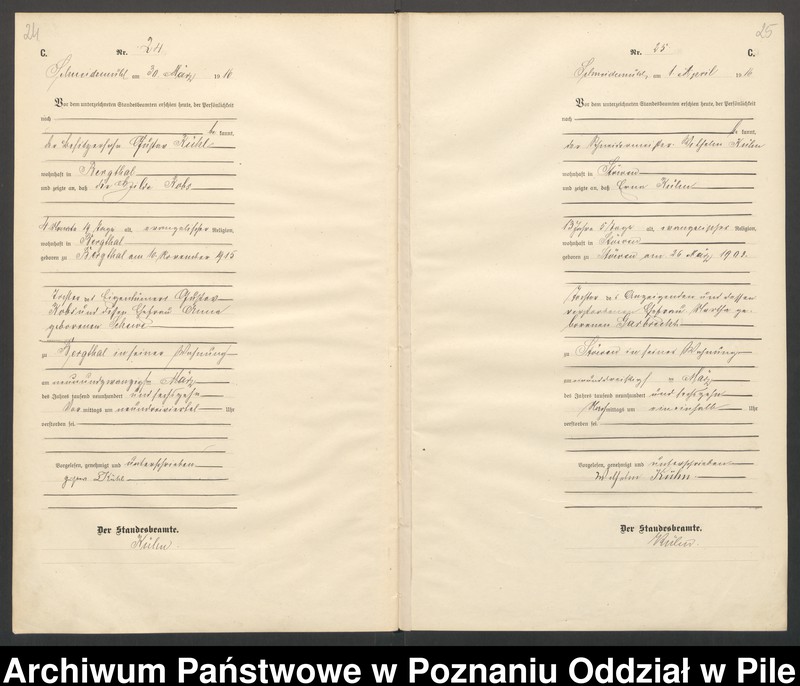 24
C.
Nr. 24
Schneidemühl am 30 März 1916
Vor dem unterzeichneten Standesbeamten erschien heute, der Persönlichkeit
nach
be kannt,
der Besitzersohn Gustav Kühl
wohnhaft in Bergthal
und zeigte an, daß Kobs
4 Monate 14 Tage alt, evangelischer Religion,
wohnhaft in Bergthal
geboren zu Bergthal am 16 November 1915
Tochter des Eigentümers Gustav
Kobs und dessen Ehefrau Anna
geborenen
zu Bergthal in seiner Wohnung
am neunundzwanzigsten März
des Jahres tausend neunhundert und sechszehn
Vormittags um neundreiviertel Uhr
verstorben sei.
Vorgelesen, genehmigt und unterschrieben
Kühl
Der Standesbeamte.
Kühn
25
Nr. 25
C.
Schneidemühl, am 1 April 1916
Vor dem unterzeichneten Standesbeamten erschien heute, der Persönlichkeit
nach
be kannt,
der Schneidermeister Wilhelm Kühn
wohnhaft in Stöwen
und zeigte an, daß Erna Kühn
13 Jahre 5 Tage alt, evangelischer Religion,
wohnhaft in Stöwen
geboren zu Stöwen am 26 März 190
Tochter des Anzeigenden und dessen
verstorbenen Ehefrau Martha ge-
borenen
zu Stöwen in seiner Wohnung
am einunddreißigsten März
des Jahres tausend neunhundert und sechszehn
Nachmittags um eineinhalb Uhr
verstorben sei.
Vorgelesen, genehmigt und unterschrieben
Wilhelm Kühn
Der Standesbeamte.
Kühn.
Archiwum Państwowe w Poznaniu Oddział w Pile